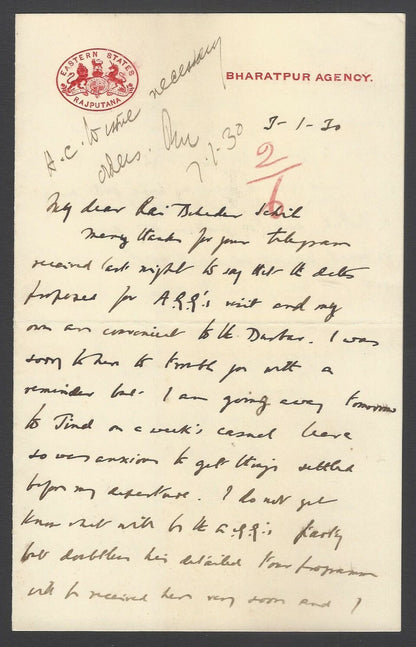 EASTERN STATES
RAJPUTANA
BHARATPUR AGENCY.
A.C. to issue necessary
orders.
7.1.30
3-1-30
2/6
My dear Rai Bahadur Sahib
Many thanks for your telegram
received last night to say that the dates
proposed for A.G.G.'s visit and my
own are convenient to the Darbar. I was
sorry to have to trouble you with a
reminder but I am going away tomorrow
to Jind on a week's casual leave
so was anxious to get things settled
before my departure. I do not yet
know what will be the A.G.G.'s party
but doubtless his detailed tour programme
will be received here very soon and I